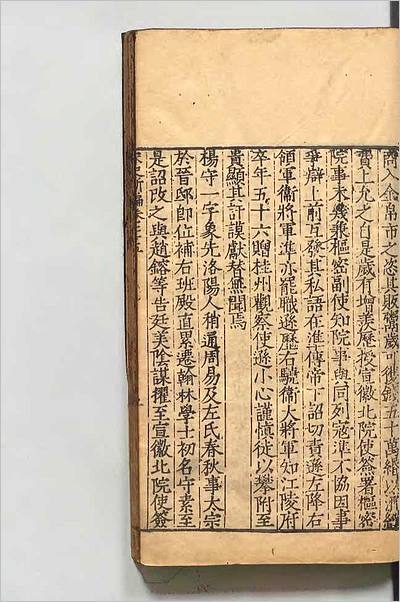 商人金帛市之恣其販鬻歲可獲錢五十萬緡以濟經
費上允之自是歲有增羨歷授宣徽北院使簽署樞密
院事未幾兼樞密副使知院事與同列寇準不協因事
爭辯上前互發其私語在準傳帝下詔切責遜左降右
領軍衛將軍準亦罷職遜歷右驍衛大將軍知江陵府
卒年五十六贈桂州觀察使遜小心謹慎徒以攀附至
貴顯其訏謨獻替無聞焉
楊守一字象先洛陽人稍通周易及左氏春秋事太宗
於晉邸卽位補右班殿直累遷翰林學士初名守素至
是詔改之與趙鎔等告廷美陰謀擢至宣徽北院使簽
宋史新編卷